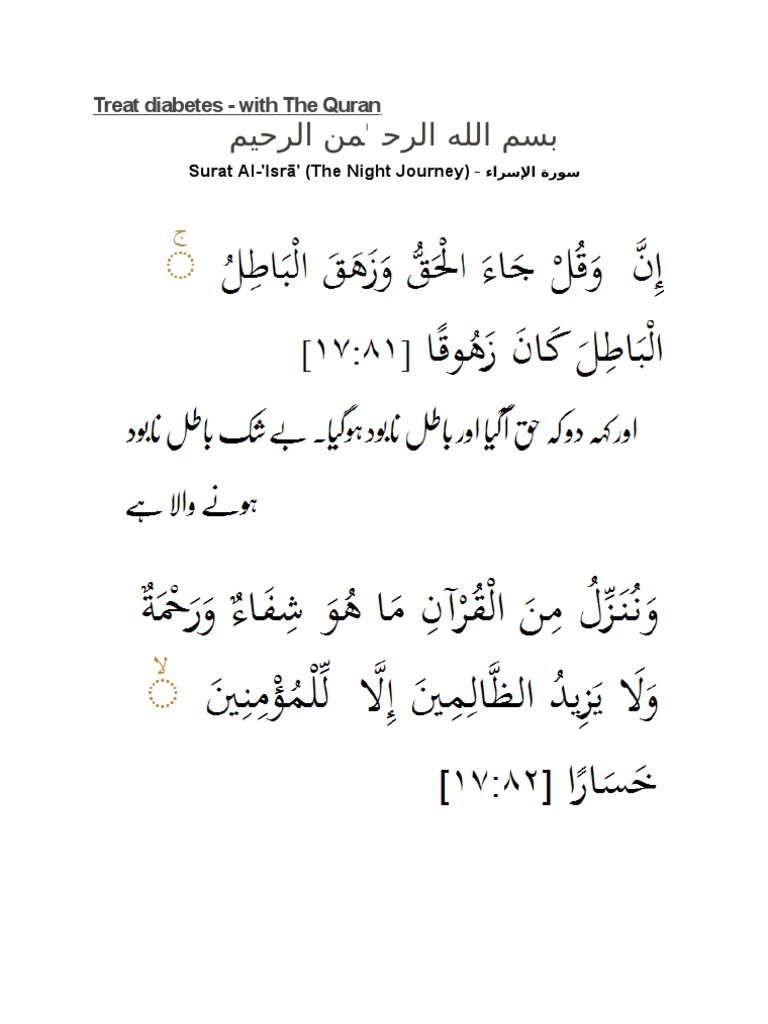 Treat diabetes - with The Quran
بسم الله الرحـ ٰمن الرحيم
Surat Al-'Isrā' (The Night Journey) - سورة الإسراء
إِنَّ وَقُلْ جَاءَ الْحَقُّ وَزَهَقَ الْبَاطِلُ ۚ
الْبَاطِلَ كَانَ زَهُوقًا [١٧:٨١]
اور کہہ دو کہ حق آگیا اور باطل نابود ہوگیا۔ بے شک باطل نابود
ہونے والا ہے
وَنُنَزِّلُ مِنَ الْقُرْآنِ مَا هُوَ شِفَاءٌ وَرَحْمَةٌ
وَلَا يَزِيدُ الظَّالِمِينَ إِلَّا لِّلْمُؤْمِنِينَ ۙ
خَسَارًا [١٧:٨٢]